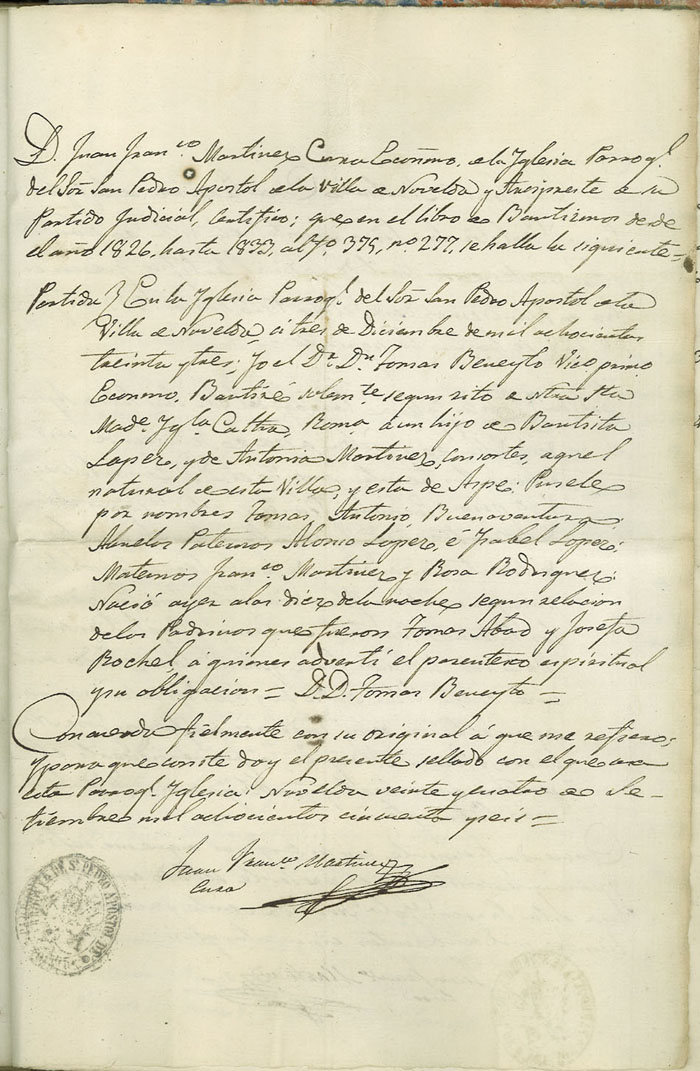 D. Juan Fran.co Martinez Cura Ecónomo, de la Yglesia Parroq.l
del Sor. San Pedro Apostol de la Villa de Novelda y Arcipreste de su
Partido Judicial, Certifico; que en el libro de Bautismos desde
el año 1826, hasta 1833, al fo. 375, no. 277, se halla la siguiente=
Partida } En la Yglesia Parroq.l del Sor. San Pedro Apostol de la
Villa de Novelda, á tres de Diciembre de mil ochocientos
treinta y tres; Yo el Dr. Dn. Tomas Beneyto Vice primo
Economo, Bautizé solem.te segun rito de ntra Sta
Made. Ygla. Cathca. Roma á un hijo de Bautista
Lopez, y de Antonia Martinez, consortes, aquel
natural de esta Villa, y esta de Aspe: Pusele
por nombres Tomas, Antonio, Buenaventura.
Abuelos Paternos Alonso Lopez, é Ysabel Lopez:
Maternos Fran.co Martinez y Rosa Rodriguez:
Nació ayer a las diez de la noche segun relacion
de los Padrinos que fueron Tomas Abad y Josefa
Rochel, á quienes advertí el parentezco espiritual
y su obligacion = D. D. Tomas Beneyto =
Concuerda fielmente con su original á que me refiero;
Y para que conste doy el presente sellado con el que usa
esta Parroq.l Yglesia: Novelda veinte y cuatro de Se-
tiembre mil ochocientos cincuenta y seis=
Juan Fran.co Martinez
Cura
DE Sn. PEDRO APOSTOL DE